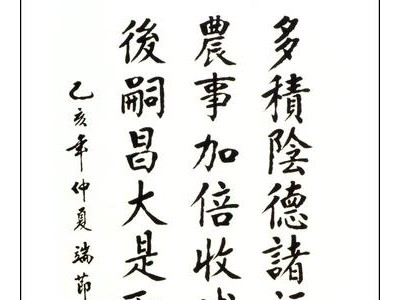 多積陰德諸
農事加倍收
後嗣昌大是
乙亥年仲夏端節